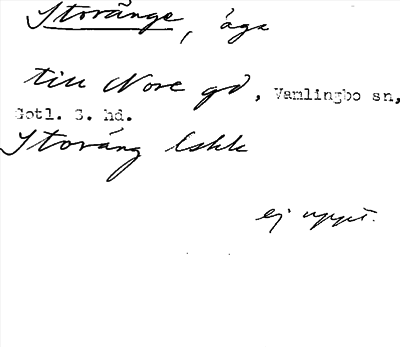 Storänge, äga
till Nore gd, Vamlingbo sn,
Gotl. S. hd.
Storäng Eskk
ej uppt.